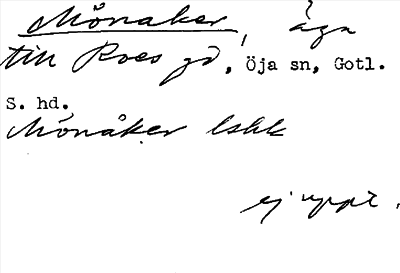 Mönaker, äga
till Roes gd, Öja sn, Gotl.
S. hd.
Mönåker lshk
ej uppt.